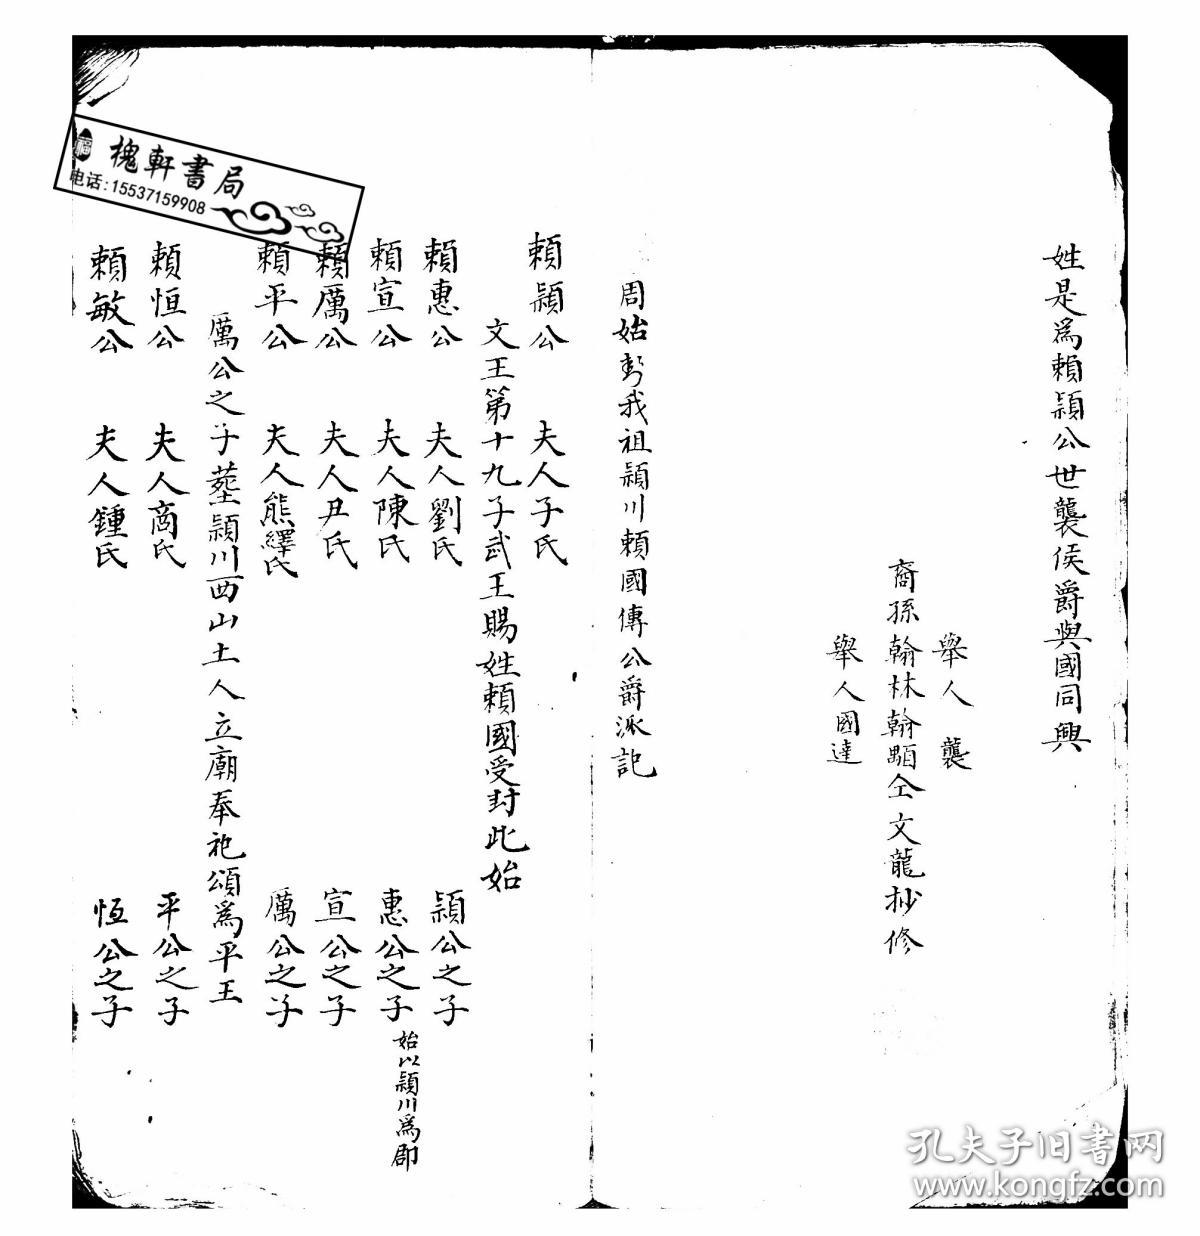 姓是為賴潁公世襲侯爵與國同興
舉人襲
裔孫翰林翰顯仝文龍抄修
舉人國達
周始封我祖潁川賴國傳公爵派記
賴潁公 夫人子氏
文王第十九子武王賜姓賴國受封此始
賴惠公 夫人劉氏 潁公之子
賴宣公 夫人陳氏 惠公之子 始以潁川為郡
賴厲公 夫人尹氏 宣公之子
賴平公 夫人熊繹氏 厲公之子
厲公之子塟潁川西山土人立廟奉祀頌為平王
賴恒公 夫人商氏 平公之子
賴敏公 夫人鍾氏 恆公之子
槐軒書局
电话:15537159908
福
孔夫子旧书网
www.kongfz.com